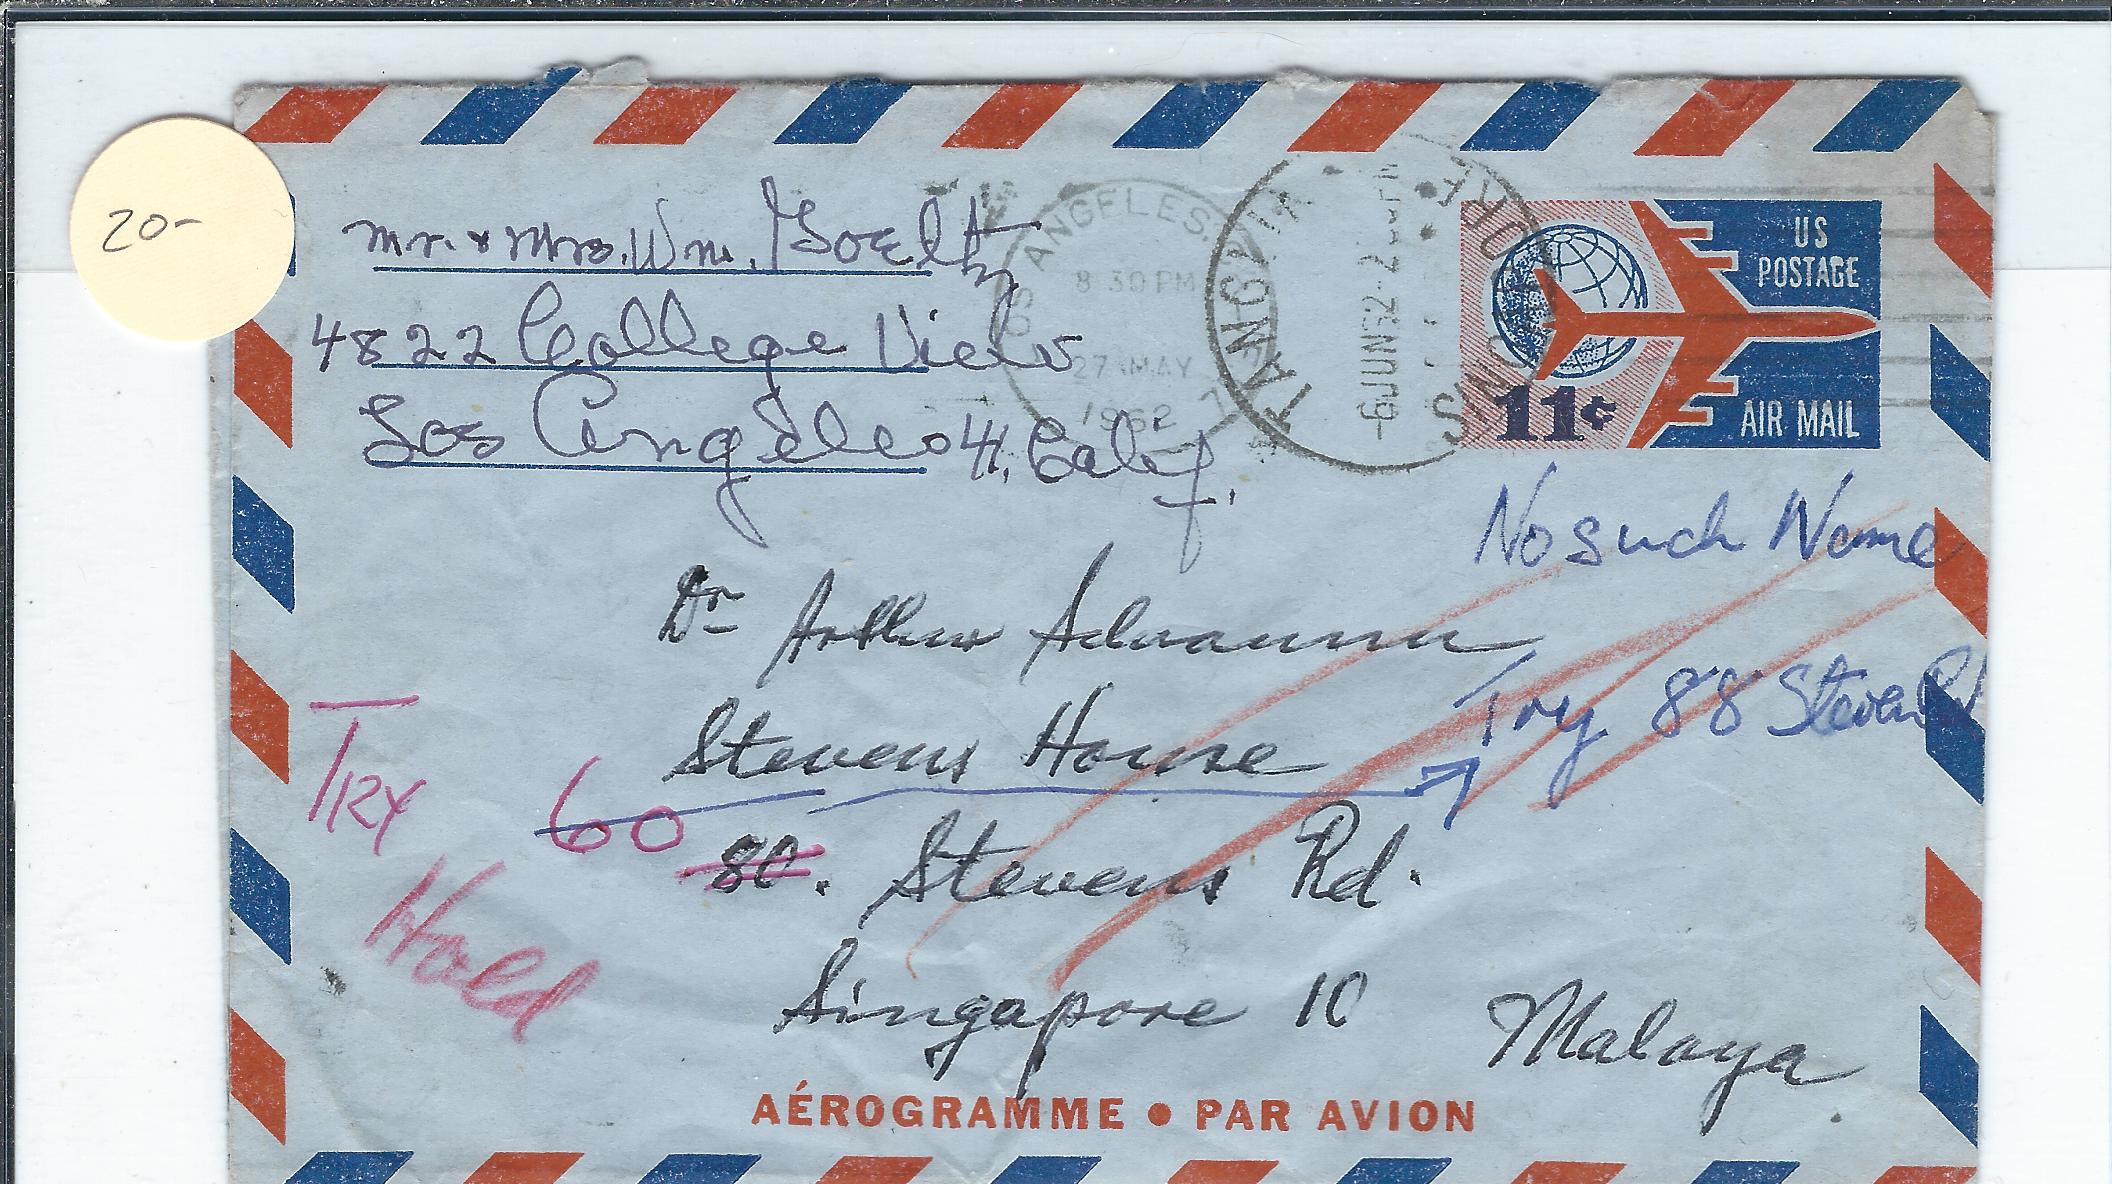 20-
Mr. & Mrs. Wm. Goelty
4822 College View
Los Angeles 41, Calif.
LOS ANGELES.
8 30 PM
27 MAY
1962
TANGLIN
6 JUN 62
SINGAPORE
US
POSTAGE
11¢
AIR MAIL
No such Name
Dr Arthur
Stevens House
Try 88 Steven Rd
TRY 60
80. Stevens Rd.
Hold
Singapore 10
Malaya
AÉROGRAMME • PAR AVION